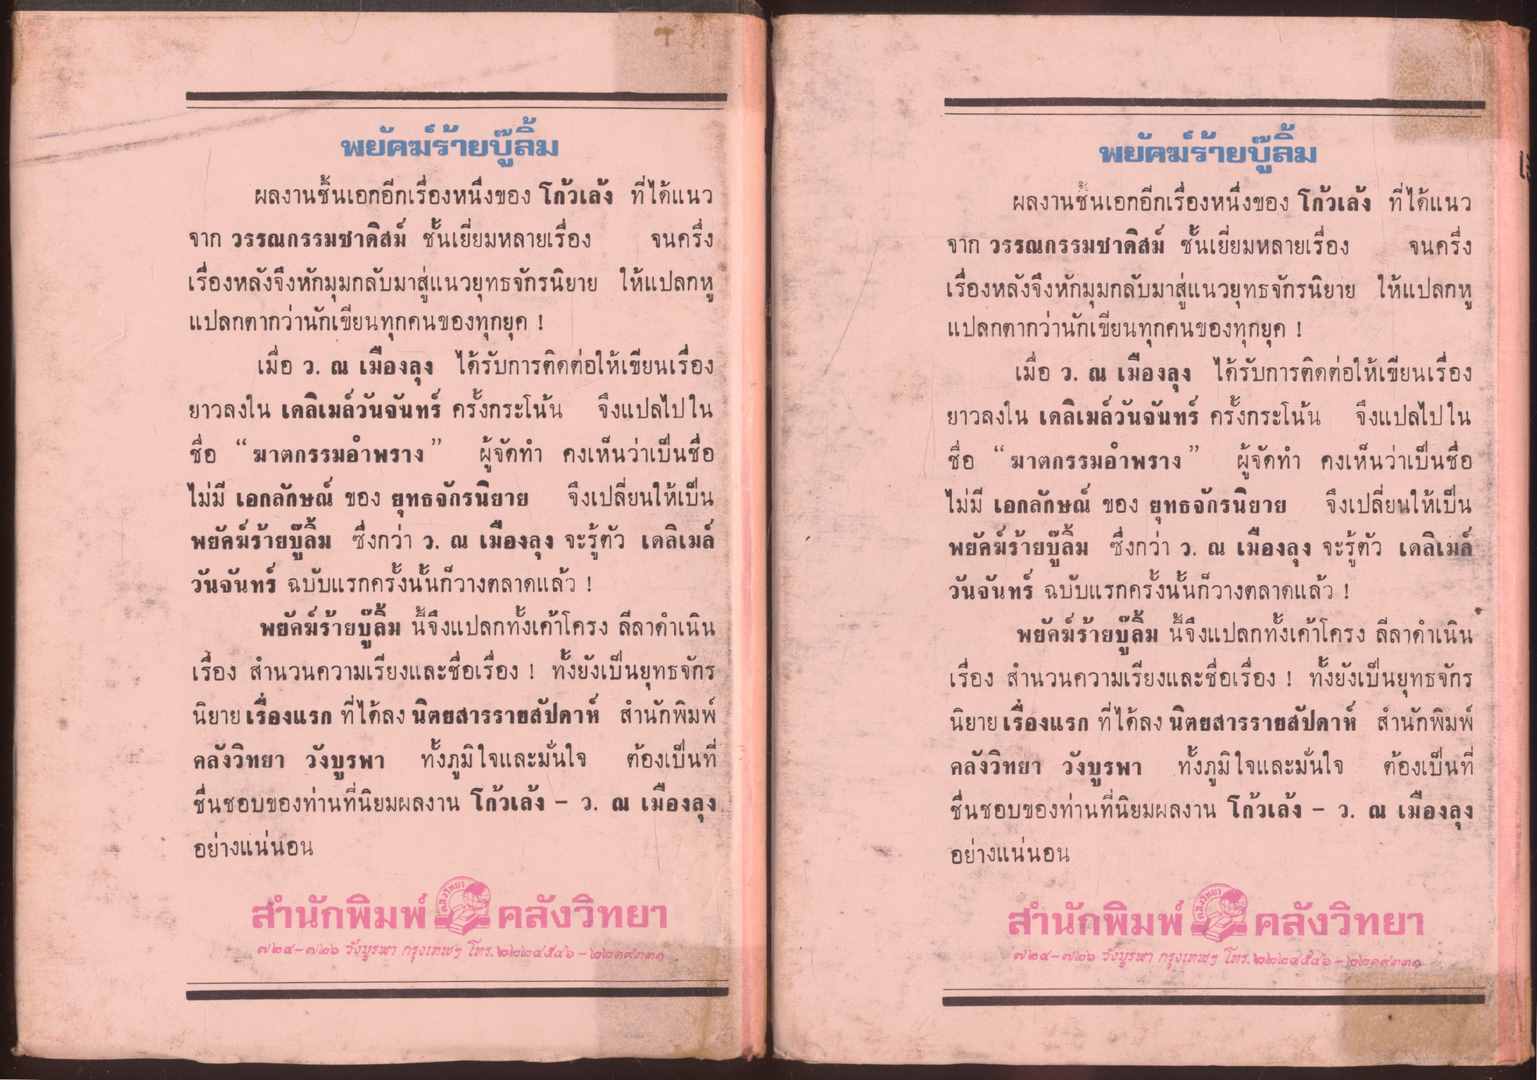 พยัคฆ์ร้ายบู๊ลิ้ม
ผลงานชิ้นเอกอีกเรื่องหนึ่งของ โก้วเล้ง ที่ได้แนว
จาก วรรณกรรมชาติสม์ ชั้นเยี่ยมหลายเรื่อง จนครึ่ง
เรื่องหลังจึงหักมุมกลับมาสู่แนวยุทธจักรนิยาย ให้แปลกหู
แปลกตากว่านักเขียนทุกคนของทุกยุค !
เมื่อ ว. ณ เมืองลุง ได้รับการติดต่อให้เขียนเรื่อง
ยาวลงใน เดลิเมล์วันจันทร์ ครั้งกระโน้น จึงแปลไปใน
ชื่อ “ฆาตกรรมอำพราง” ผู้จัดทำ คงเห็นว่าเป็นชื่อ
ไม่มี เอกลักษณ์ ของ ยุทธจักรนิยาย จึงเปลี่ยนให้เป็น
พยัคฆ์ร้ายบู๊ลิ้ม ซึ่งกว่า ว. ณ เมืองลุง จะรู้ตัว เดลิเมล์
วันจันทร์ ฉบับแรกครั้งนั้นก็วางตลาดแล้ว !
พยัคฆ์ร้ายบู๊ลิ้ม นี้จึงแปลกทั้งเค้าโครง ลีลาดำเนิน
เรื่อง สำนวนความเรียงและชื่อเรื่อง ! ทั้งยังเป็นยุทธจักร
นิยาย เรื่องแรก ที่ได้ลง นิตยสารรายสัปดาห์ สำนักพิมพ์
คลังวิทยา วังบูรพา ทั้งภูมิใจและมั่นใจ ต้องเป็นที่
ชื่นชอบของท่านที่นิยมผลงาน โก้วเล้ง – ว. ณ เมืองลุง
อย่างแน่นอน
สำนักพิมพ์ คลังวิทยา คลังวิทยา
๗๒๔-๗๒๖ วังบูรพา กรุงเทพฯ โทร. ๒๒๒๔๕๔๖ - ๒๒๑๙๓๓๑
พยัคฆ์ร้ายบู๊ลิ้ม
ผลงานชิ้นเอกอีกเรื่องหนึ่งของ โก้วเล้ง ที่ได้แนว
จาก วรรณกรรมชาติสม์ ชั้นเยี่ยมหลายเรื่อง จนครึ่ง
เรื่องหลังจึงหักมุมกลับมาสู่แนวยุทธจักรนิยาย ให้แปลกหู
แปลกตากว่านักเขียนทุกคนของทุกยุค !
เมื่อ ว. ณ เมืองลุง ได้รับการติดต่อให้เขียนเรื่อง
ยาวลงใน เดลิเมล์วันจันทร์ ครั้งกระโน้น จึงแปลไปใน
ชื่อ “ฆาตกรรมอำพราง” ผู้จัดทำ คงเห็นว่าเป็นชื่อ
ไม่มี เอกลักษณ์ ของ ยุทธจักรนิยาย จึงเปลี่ยนให้เป็น
พยัคฆ์ร้ายบู๊ลิ้ม ซึ่งกว่า ว. ณ เมืองลุง จะรู้ตัว เดลิเมล์
วันจันทร์ ฉบับแรกครั้งนั้นก็วางตลาดแล้ว !
พยัคฆ์ร้ายบู๊ลิ้ม นี้จึงแปลกทั้งเค้าโครง ลีลาดำเนิน
เรื่อง สำนวนความเรียงและชื่อเรื่อง ! ทั้งยังเป็นยุทธจักร
นิยาย เรื่องแรก ที่ได้ลง นิตยสารรายสัปดาห์ สำนักพิมพ์
คลังวิทยา วังบูรพา ทั้งภูมิใจและมั่นใจ ต้องเป็นที่
ชื่นชอบของท่านที่นิยมผลงาน โก้วเล้ง – ว. ณ เมืองลุง
อย่างแน่นอน
สำนักพิมพ์ คลังวิทยา คลังวิทยา
๗๒๔-๗๒๖ วังบูรพา กรุงเทพฯ โทร. ๒๒๒๔๕๔๖ - ๒๒๑๙๓๓๑